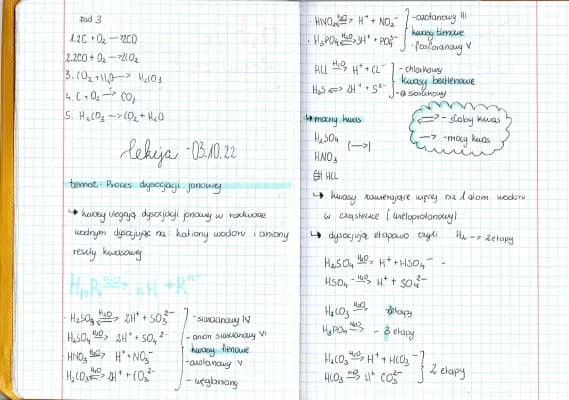 zad 3
1.2C + O₂ → 2CO
2.2CO + O₂ → 2CO₂
3. CO₂ + H₂O → H₂CO₃
4. C + O₂ → CO₂
5. H₂CO₃ → CO₂ + H₂O
lekcja - 03.10.22
temat: Proces dysocjacji jonowej
↳ kwasy ulegają dysocjacji jonowej w roztworze
wodnym dysocjując na: kationy wodoru i aniony
reszty kwasowej
· H₂SO₃ ⇌ 2H⁺ + SO₃²⁻ - siarczanowy IV
H₂SO₄ → 2H⁺ + SO₄²⁻ - anion siarczanowy VI
kwasy tlenowe
· HNO₃ → H⁺ + NO₃⁻ - azotanowy V
H₂CO₃ ⇌ 2H⁺ + CO₃²⁻ - węglanowy
· HNO₂ ⇌ H⁺ + NO₂⁻ - azotanowy III
kwasy tlenowe
· H₃PO₄ ⇌ 3H⁺ + PO₄³⁻ - fosforanowy V
HCl → H⁺ + Cl⁻ - chlorkowy
kwasy beztlenowe
H₂S ⇌ 2H⁺ + S²⁻ - siarczkowy
↳ mocny kwas
H₂SO₄
HNO₃ (→)
HCL
⇌ - słaby kwas
→ - mocny kwas
↳ kwasy zawierające więcej niż 1 atom wodoru
w cząsteczce (wieloprotonowy)
↳ dysocjują etapowo czyli H₂ → 2 etapy
H₂SO₄ → H⁺ + HSO₄⁻
HSO₄⁻ → H⁺ + SO₄²⁻
H₂CO₃ 2 etapy
H₃PO₄ - 3 etapy
H₂CO₃ → H⁺ + HCO₃⁻
HCO₃ → H⁺ CO₃²⁻ 2 etapy